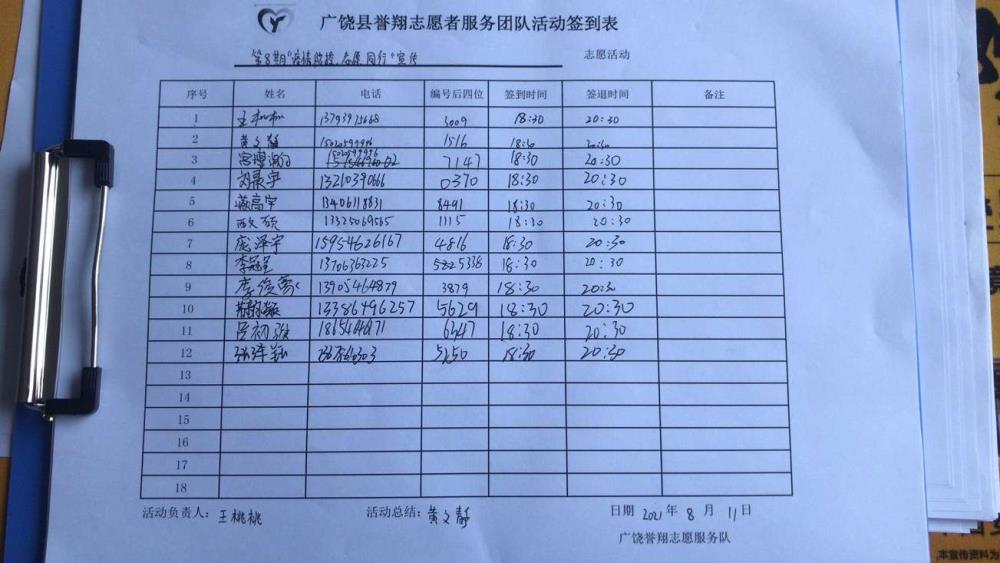 广饶县誉翔志愿者服务团队活动签到表
第8期"疫情防控,志愿同行"宣传 志愿活动
序号 姓名 电话 编号后四位 签到时间 签退时间 备注
1 王桃桃 13793975668 3009 18:30 20:30
2 黄文静 15020599996 1516 18:30 20:30
3 7147 18:30 20:30
4 刘晨宇 13210390666 0370 18:30 20:30
5 燕高宇 13406118831 8491 18:30 20:30
6 13325069565 1115 18:30 20:30
7 庞泽宇 15954626167 4816 18:30 20:30
8 13706363225 5338 18:30 20:30
9 李俊 13905464879 3879 18:30 20:30
10 13386496257 5629 18:30 20:30
11 吕初 6347 18:30 20:30
12 5250 18:30 20:30
13
14
15
16
17
18
活动负责人: 王桃桃 活动总结: 黄文静 日期 2021年 8 月 11日
广饶誉翔志愿服务队
本宣传资料为